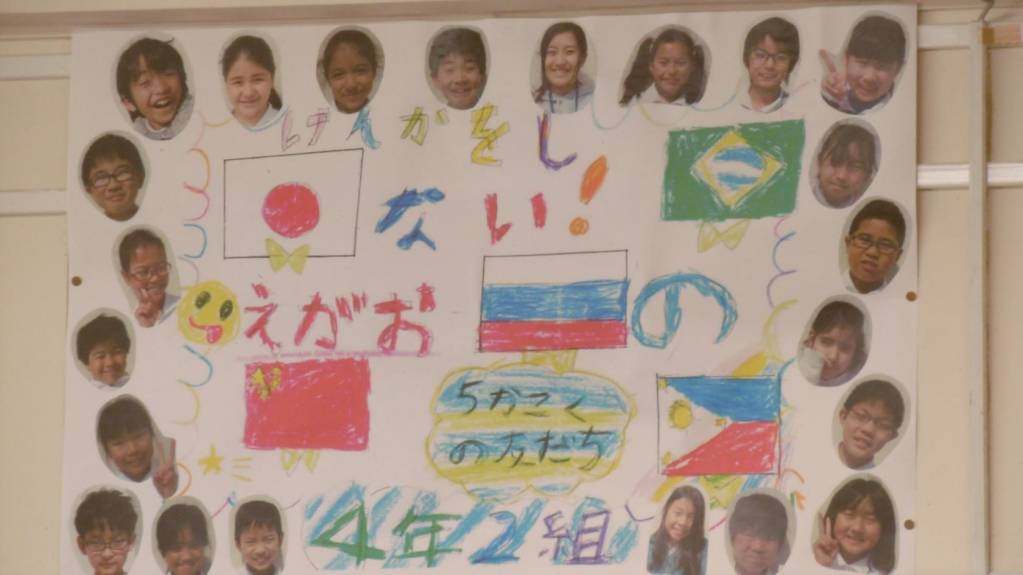 けんかをし
ない!
えがおの
5かこく
の友だち
4年2組